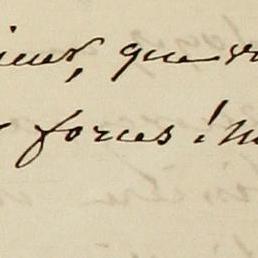 ieur, que v
forces! m